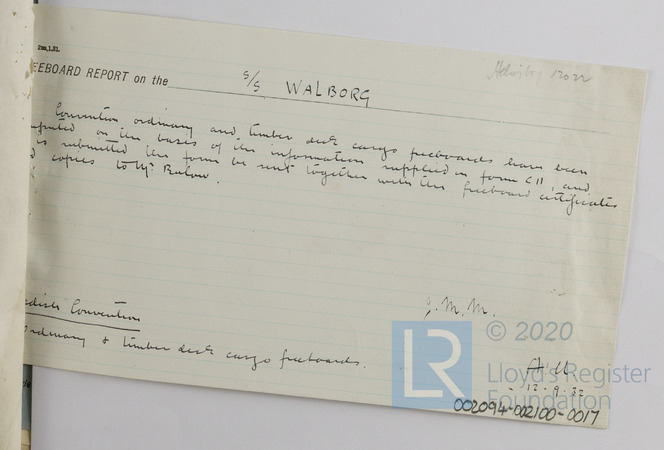 2m,1.31.
EEBOARD REPORT on the S/S WALBORG
Convention ordinary and timber deck cargo freeboards have been
on the basis of the information supplied in form C11, and
is submitted the form be sent together with the freeboard certificates
copies to Mr
edish Convention
Ordinary & timber deck cargo freeboards.
J.M.M.
12.9.32
© 2020
LR
Lloyd's Register
Foundation
002094-002100-0017